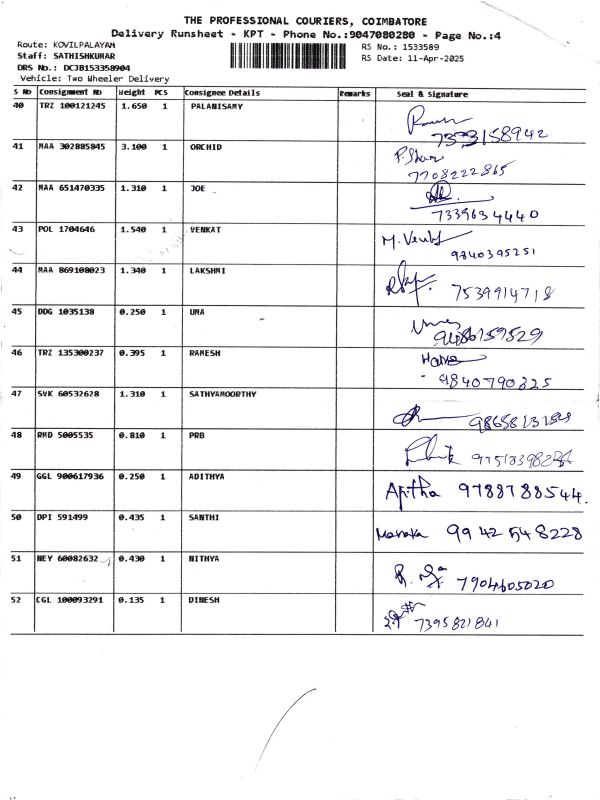 THE PROFESSIONAL COURIERS, COIMBATORE
Delivery Runsheet - KPT - Phone No.:9047080280 - Page No.:4
Route: KOVILPALAYAM
RS No.: 1533589
Staff: SATHISHKUMAR
RS Date: 11-Apr-2025
DRS No.: DCJB153358904
Vehicle: Two Wheeler Delivery
S No Consignment No Weight PCS Consignee Details Remarks Seal & Signature
40 TRZ 100121245 1.650 1 PALANISAMY
7373158942
41 MAA 302885845 3.100 1 ORCHID
7708222865
42 MAA 651470335 1.310 1 JOE
7339634440
43 POL 1704646 1.540 1 VENKAT
M. Venkat
9840395251
44 MAA 869108023 1.340 1 LAKSHMI
7539914718
45 DDG 1035138 0.250 1 UMA
9486159529
46 TRZ 135300237 0.395 1 RAMESH
9840790325
47 SVK 60532628 1.310 1 SATHYAMOORTHY
48 RMD 5005535 0.810 1 PRB
49 GGL 900617936 0.250 1 ADITHYA
9788788544.
50 DPI 591499 0.435 1 SANTHI
9942548228
51 NEY 60082632 0.430 1 NITHYA
7904605020
52 CGL 100093291 0.135 1 DINESH
7395821841